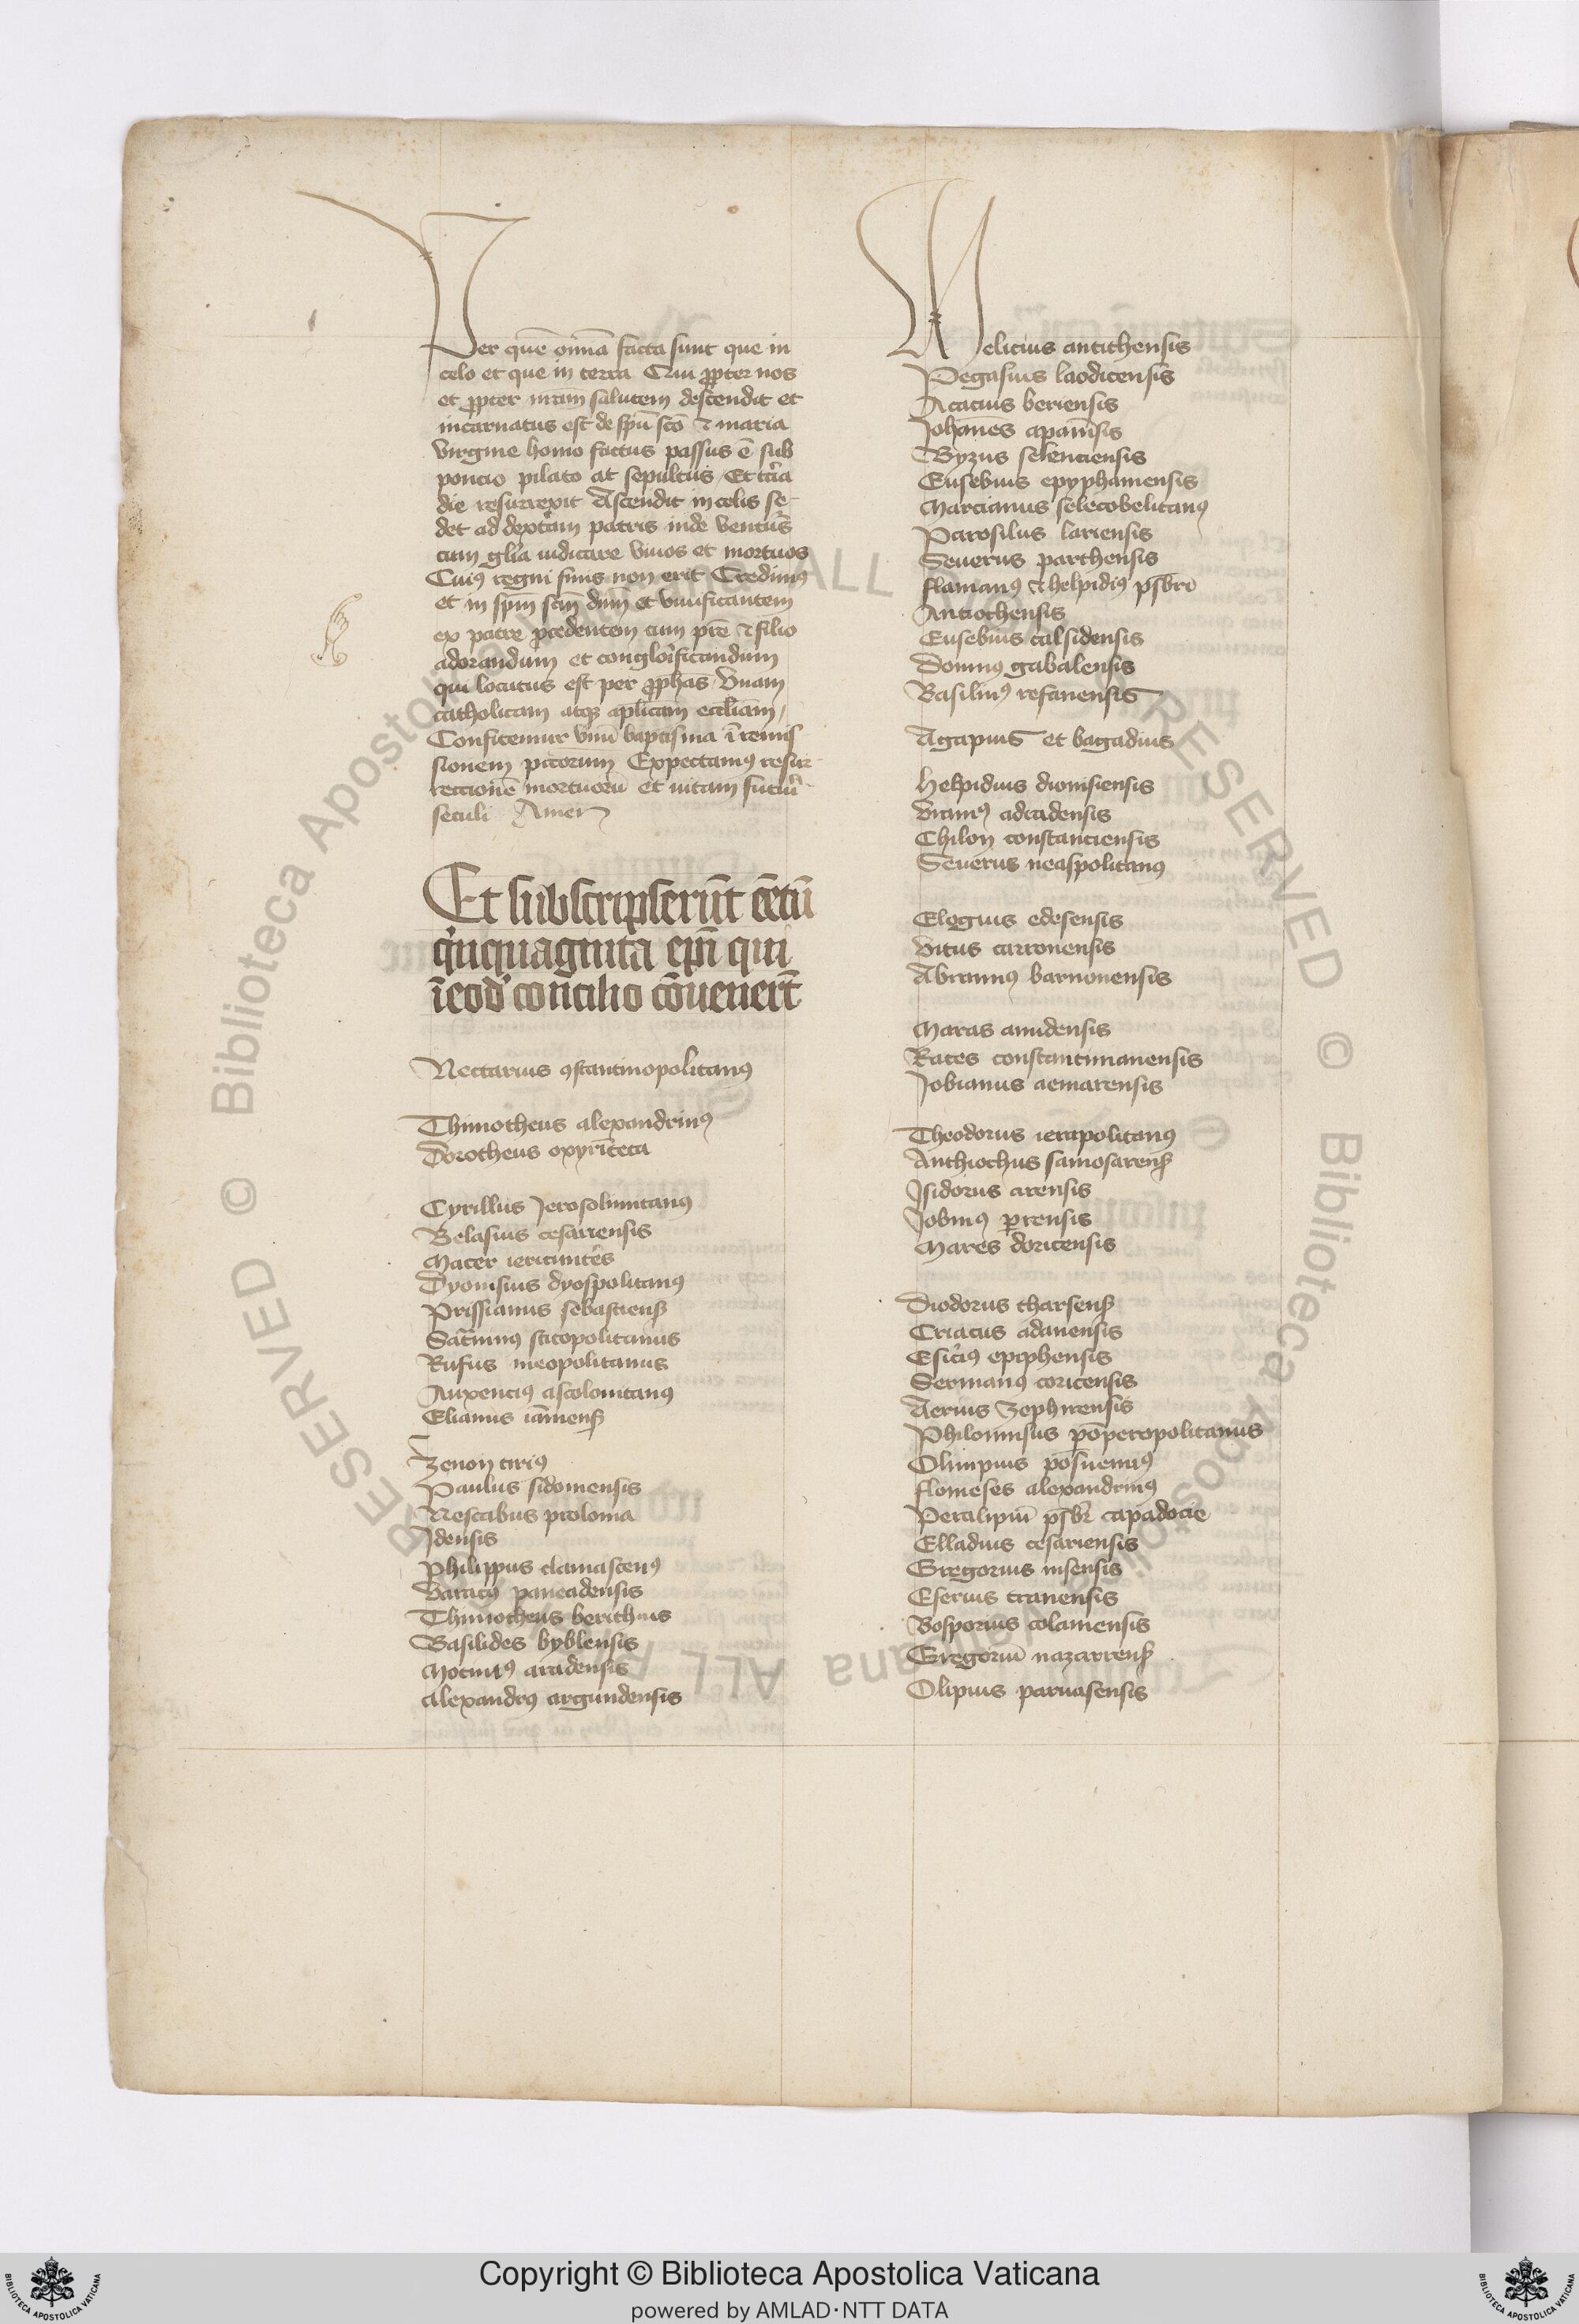 Per quē om̄ia facta sunt que in
celo et que in terra Qui ꝓpter nos
et ꝓpter nr̄am salutem descendit et
incarnatus est de spū sc̄o ⁊ maria
virgine homo factus passus ē sub
poncio pilato at sepultus Et tc̄ia
die resurrexit Ascendit in celis se-
det ad dextram patris inde venturs
cum gl̄ia iudicare viuos et mortuos
Cuiꝰ regni finis non erit Credimꝰ
et in spm̄ scm̄ dnm̄ et viuificantem
ex patre ꝓcedentem cum pr̄e ⁊ filio
adorandum et congloīficandum
qui locutus est per ꝓphas Vnam
catholicam atqꝫ aplicam eccliam
Confitemur vnū baptisma ī remis
sionem pctorum Expectamꝰ resur
rectionē mortuorū et uitam futuri
seculi Amen
Et subscripserūt cētū
qinquaginta epī qui
ī eod concilio cōuenert̄
Nectarius ꝯstantinopolitanꝰ
Thimotheus alexandrinꝰ
Dorotheus oxyriteca
Cyrillus Jerosolimitanꝰ
Belasius cesariensis
Macer iericuntes
Dyonisius dyospolitanꝰ
Prissianus sebastiens
Satninꝰ scitopolitanus
Rufus nieopolitanus
Auxenciꝰ ascolonitanꝰ
Elianus iāmens
Zenon tiriꝰ
Paulus sidomensis
Nestabus ptoloma
Jdensis
Philippus damascenꝰ
Baracꝰ paneadensis
Thimotheus berithius
Basilides byblensis
Mocimꝰ aradensis
Alexandrꝰ argundensis
Melicius anticthensis
Pegasius laodicensis
Acacius beriensis
Johanes apamsis
Byzus selenciensis
Eusebius epyphamensis
Marcianus selecobelitanꝰ
Patrosilus lariensis
Seuerus parthensis
flamanꝰ ⁊ helpidiꝰ psbri
Antiochensis
Eusebius calsidensis
Domnꝰ gabalensis
Basiliuꝰ refanensis
Agapius et bagadius
Helpidius dionisiensis
Vranꝰ adradensis
Chilon constanciensis
Seuerus neaspolitanꝰ
Elogius edesensis
Vitus carronensis
Abramꝰ barnonensis
Maras amidensis
Rates constantinanensis
Jobianus aemarensis
Theodorus ierapolitanꝰ
Anthiochus samosarens
Jsidorus arensis
Jobinꝰ prensis
Mares doricensis
Diodorus tharsens
Criacus adanensis
Esiciꝰ epephensis
Sermanꝰ coricensis
Aerius zephirensis
Philomisus pōperopolitanus
Olimpius posuenuꝰ
flomeses alexandrinꝰ
Peralipiū psbr capadocie
Elladius cesariensis
Gregorius nisensis
Eserius tranensis
Bosporius colamensis
Gregoriū nazarrens
Olipius parnasensis
Copyright © Biblioteca Apostolica Vaticana
powered by AMLAD·NTT DATA